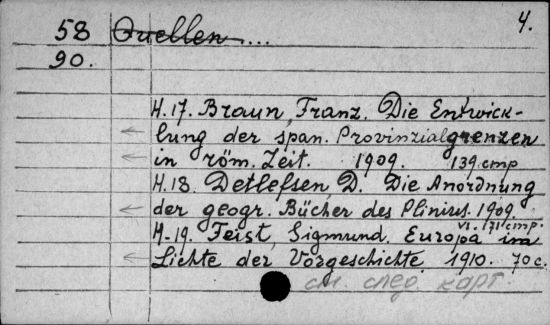 4.
58 Quellen...
90.
H.17. Braun, Franz. Die Entwick-
lung der span. Provinzialgrenzen
in röm. Zeit. 1909. 139 стр
H.18. Detlefsen, D. Die Anordnung
der geogr. Bücher des Plinius. 1909.
VI. 171 стр.
H-19. Feist, Sigmund. Europa im
Lichte der Vorgeschichte. 1910. 70 с.
см след карт